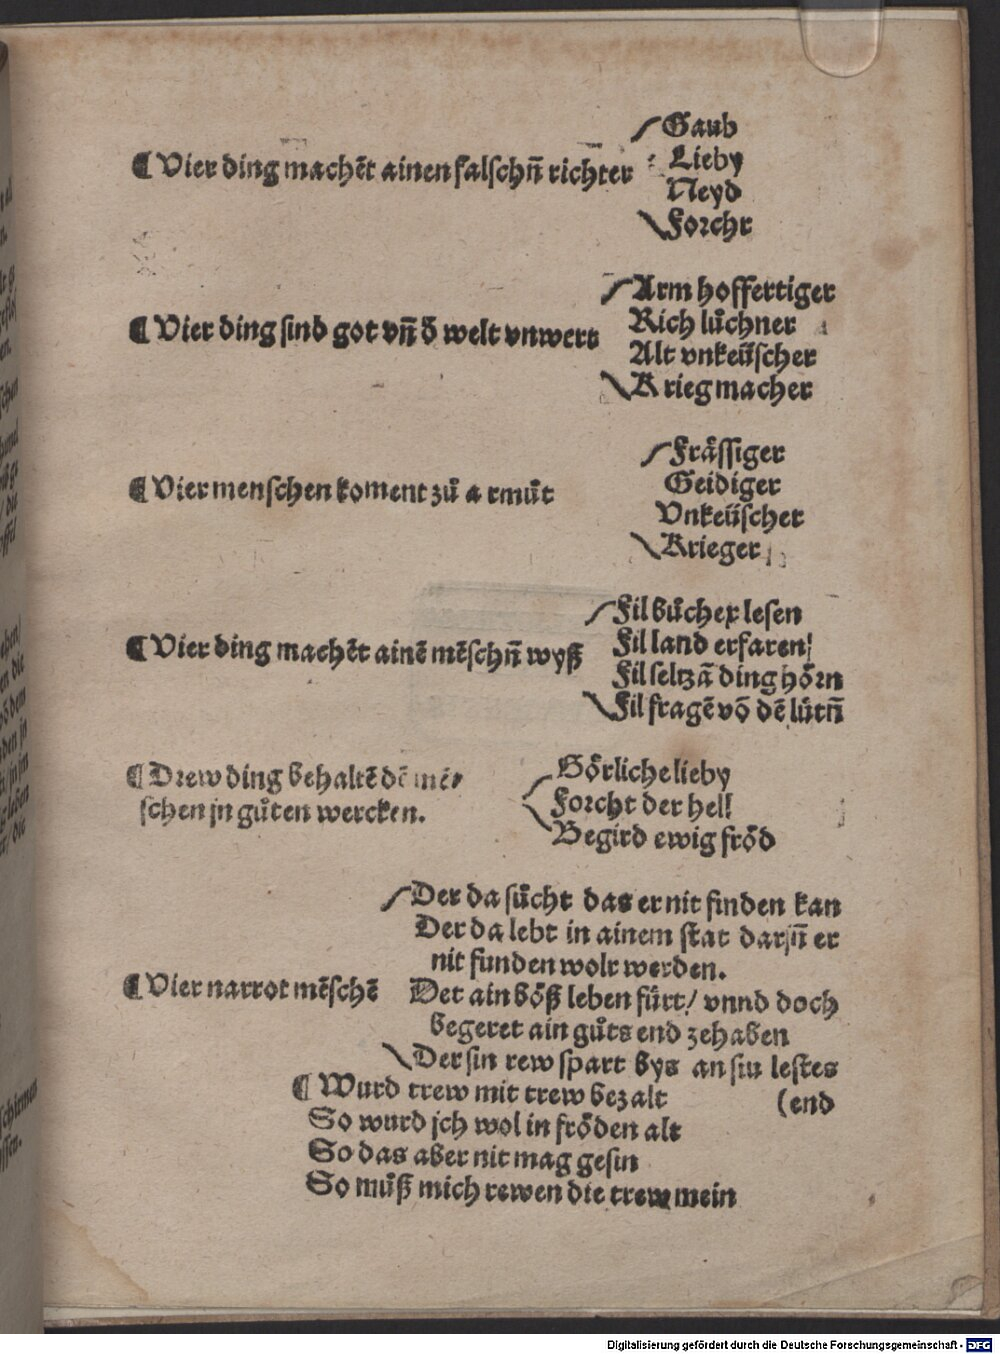 ¶ Vier ding machẽt ainen falschñ richter
Gaub
Lieby
Neyd
Forcht
¶ Vier ding sind got vñ d̄ welt vnwert
Arm hoffertiger
Rich lu̇chner
Alt vnkeüscher
Krieg macher
¶ Vier menschen koment zů armůt
Frässiger
Geidiger
Vnkeüscher
Krieger
¶ Vier ding machẽt ainẽ mẽschñ wyß
Fil bůcher lesen
Fil land erfaren/
Fil seltzã ding hörn
Fil fragẽ võ dẽ lütñ
¶ Drew ding behaltẽ dẽ mẽ⸗
schen jn gůten wercken.
Görliche lieby
Forcht der hell
Begird ewig fröd
¶ Vier narrot mẽschẽ
Der da sůcht das er nit finden kan
Der da lebt in ainem stat darjñ er
nit funden wolt werden.
Der ain böß leben fürt/ vnnd doch
begeret ain gůts end zehaben
Der sin rew spart bys an sin lestes
(end
¶ Wurd trew mit trew bezalt
So wurd jch wol in fröden alt
So das aber nit mag gesin
So můß mich rewen die trew mein
Digitalisierung gefördert durch die Deutsche Forschungsgemeinschaft - DFG